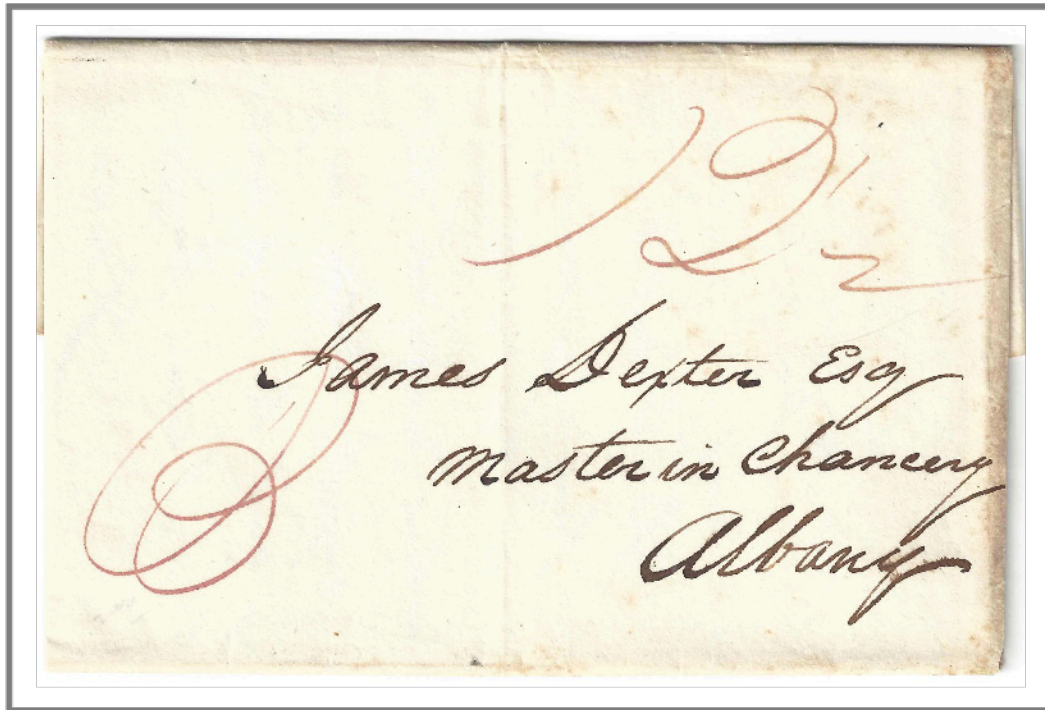 12 1/2
James Dexter Esq
Master in Chancery
Albany